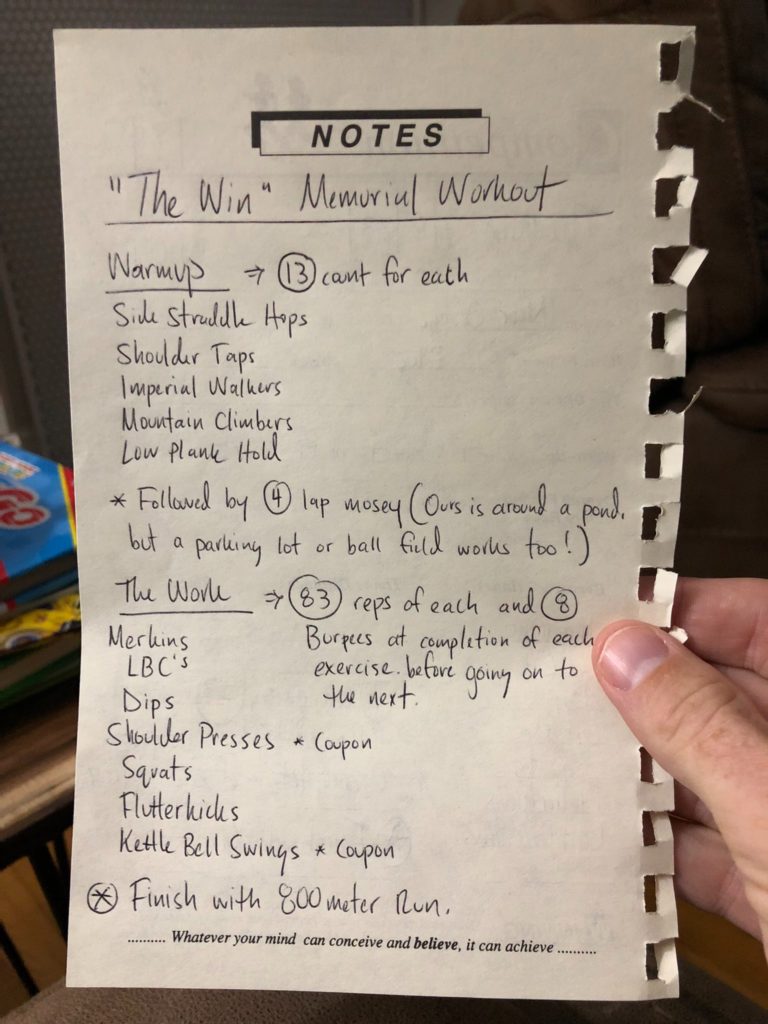 NOTES
"The Win" Memorial Workout
Warmup → 13 count for each
Side Straddle Hops
Shoulder Taps
Imperial Walkers
Mountain Climbers
Low Plank Hold
* Followed by 4 lap mosey (Ours is around a pond,
but a parking lot or ball field works too!)
The Work → 83 reps of each and 8
Merkins Burpees at completion of each
LBC's exercise. before going on to
Dips the next.
Shoulder Presses * Coupon
Squats
Flutterkicks
Kettle Bell Swings * Coupon
* Finish with 800 meter Run.
.......... Whatever your mind can conceive and believe, it can achieve ..........